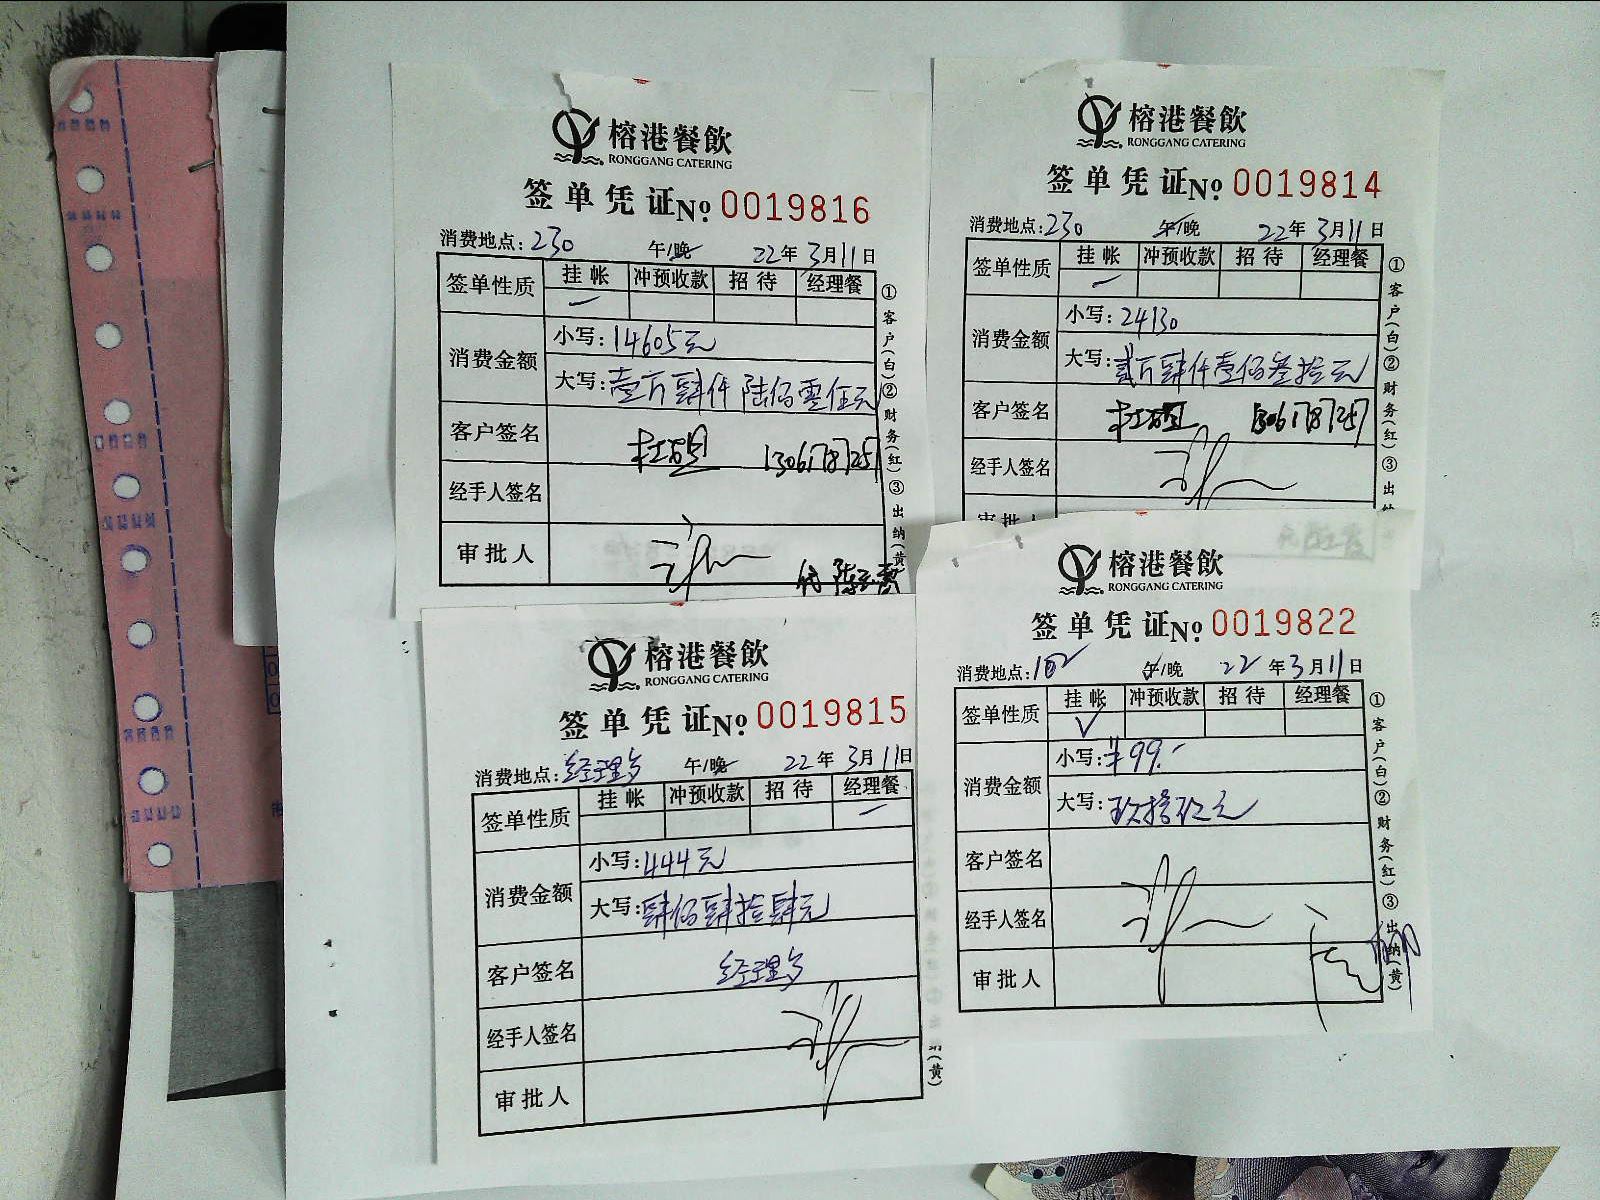 榕港餐飲
RONGGANG CATERING
签单凭证 No 0019816
消费地点:230 午/晚 22年3月11日
签单性质 挂帐 冲预收款 招待 经理餐
消费金额 小写:14605元
大写:壹万肆仟陆佰零伍元
客户签名 1306178725
经手人签名
审批人
代
①客户(白)②财务(红)③出纳(黄)
榕港餐飲
RONGGANG CATERING
签单凭证 No 0019814
消费地点:230 午/晚 22年3月11日
签单性质 挂帐 冲预收款 招待 经理餐
消费金额 小写:24130
大写:贰万肆仟壹佰叁拾元
客户签名
经手人签名
审批人
①客户(白)②财务(红)③出纳
榕港餐飲
RONGGANG CATERING
签单凭证 No 0019815
消费地点:经理 午/晚 22年3月11日
签单性质 挂帐 冲预收款 招待 经理餐
消费金额 小写:444元
大写:肆佰肆拾肆元
客户签名 经理
经手人签名
审批人
纳(黄)
榕港餐飲
RONGGANG CATERING
签单凭证 No 0019822
消费地点:102 午/晚 22年3月11日
签单性质 挂帐 冲预收款 招待 经理餐
消费金额 小写:¥99.-
大写:玖拾玖元
客户签名
经手人签名
审批人
①客户(白)②财务(红)③出纳(黄)